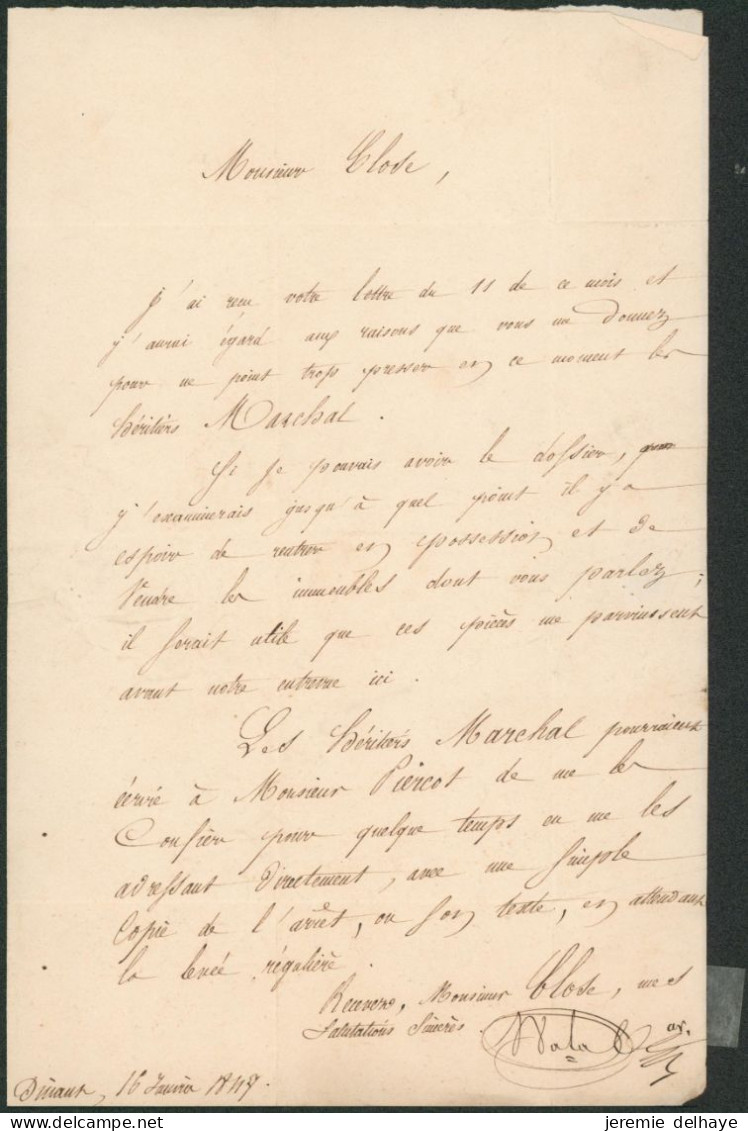 Monsieur Close,
j'ai reçu votre lettre du 11 de ce mois et
j'aurai égard aux raisons que vous me donnez
pour ne point trop presser en ce moment les
héritiers Marchal.
Si je pouvais avoir le dossier,
j'examinerais jusqu'à quel point il y a
espoir de rentrer en possession et de
Vendre les immeubles dont vous parlez;
il serait utile que ces pièces me parvinssent
avant notre entrevue ici.
Les héritiers Marchal pourraient
écrire à Monsieur Piercot de me les
Confier pour quelque temps en me les
adressant directement, avec une simple
Copie de l'arrêt, ou son texte, en attendant
la levée régulière.
Recevez, Monsieur Close, mes
Salutations Sincères.
av.
Dinant, 16 Janvier
jeremie delhaye